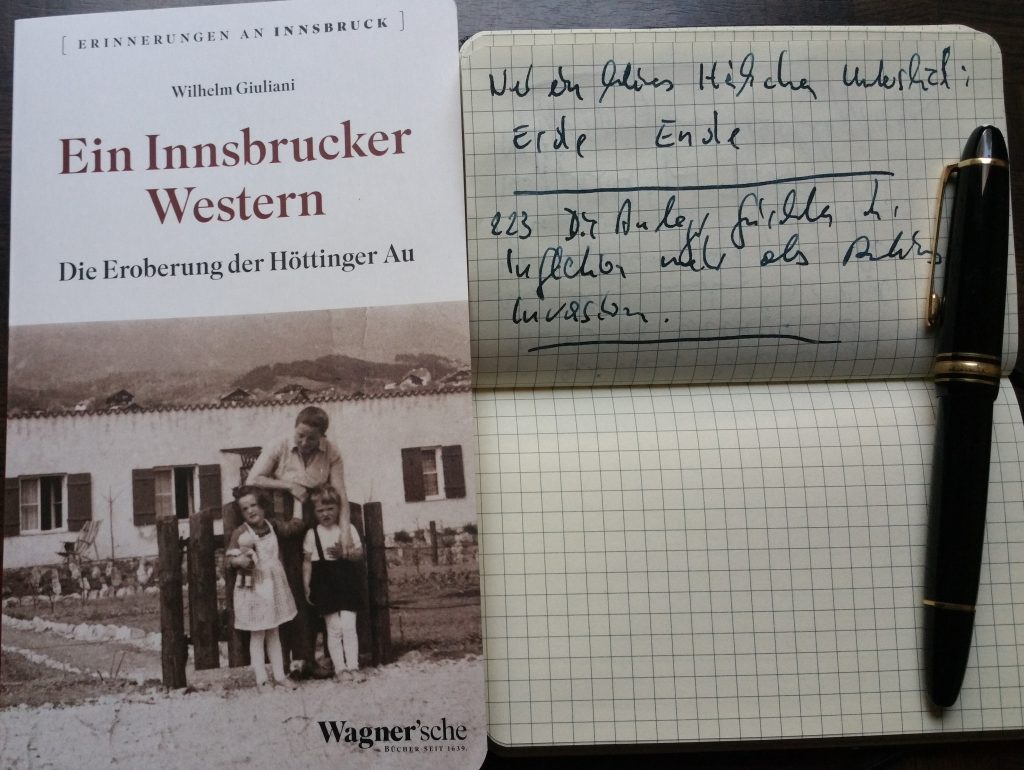 [ ERINNERUNGEN AN INNSBRUCK ]
Wilhelm Giuliani
Ein Innsbrucker
Western
Die Eroberung der Höttinger Au
Wagner'sche
BÜCHER SEIT 1639.
ein kleines Häkchen Unterschied:
Erde Ende
223 Die fürchten d.
Inflation mehr als
Invasion.